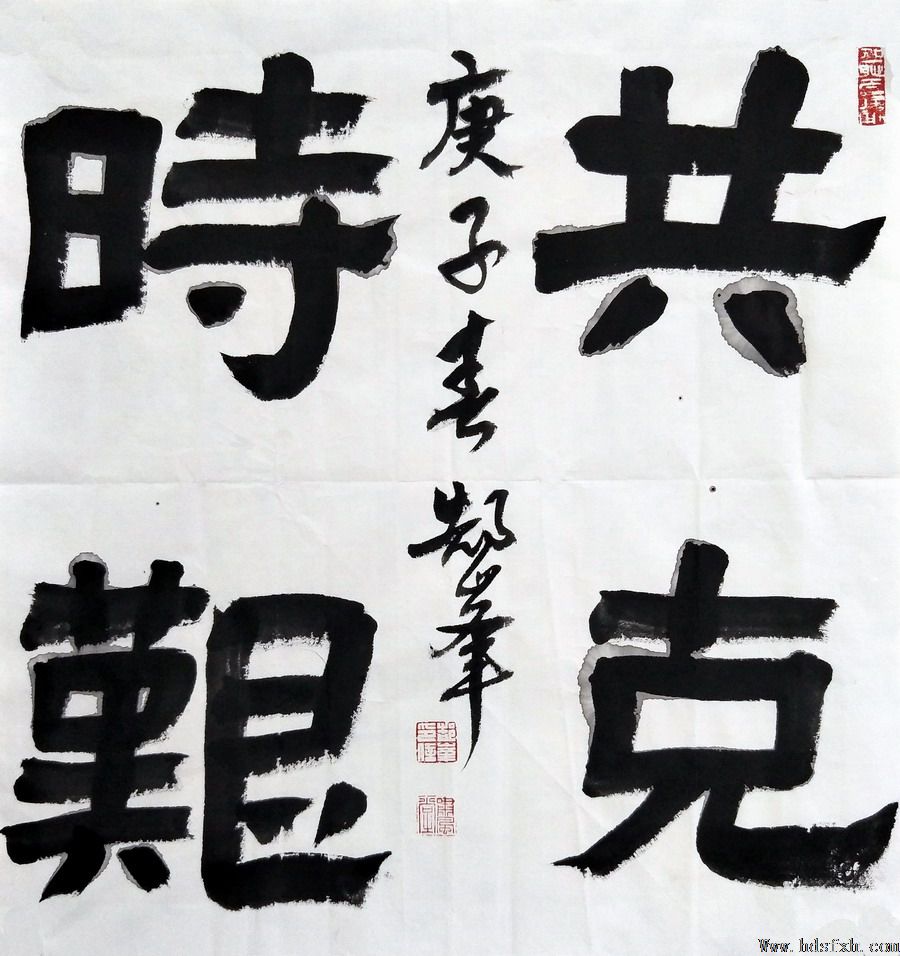 共克
時艱
庚子春 郝峯
Www.hdsfxh.com